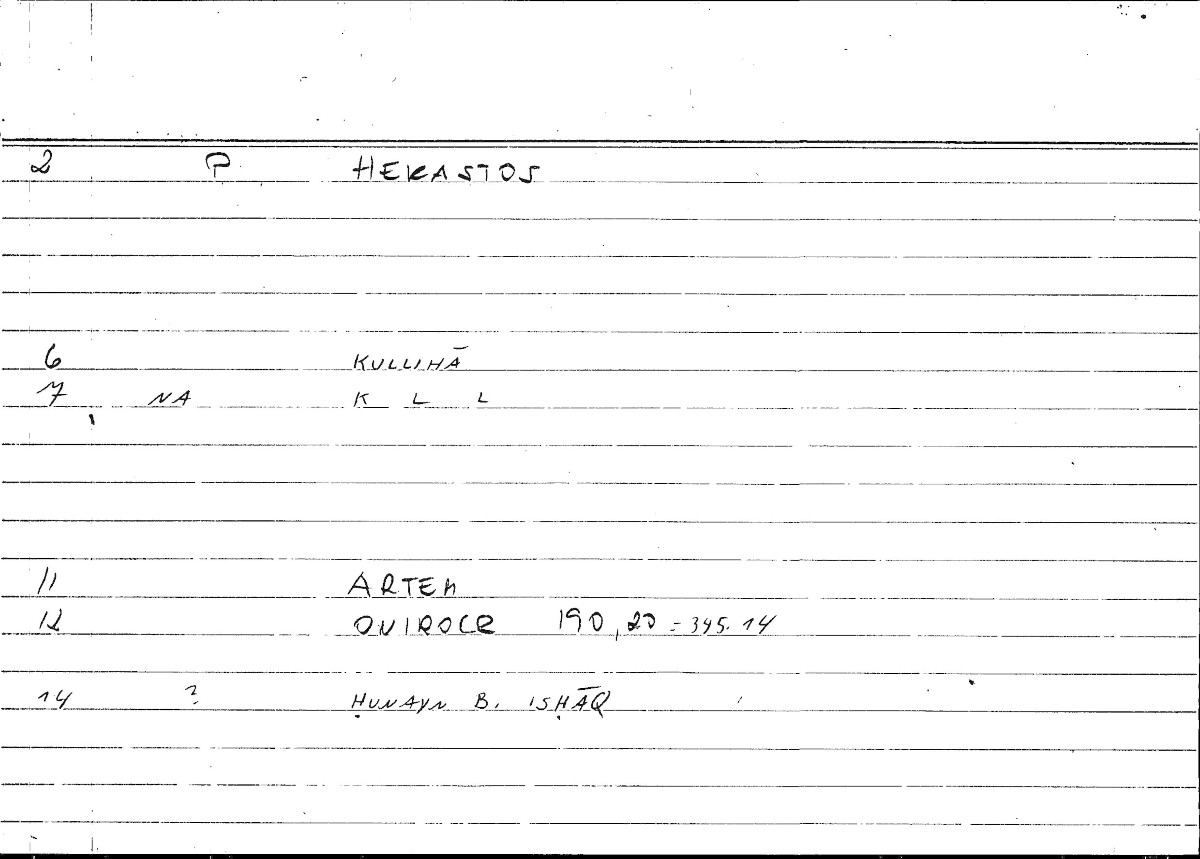 2 P HEKASTOS
6 KULLIHĀ
7 NA K L L
11 ARTEM
12 ONIROCR 190,20 = 345.14
14 ? ḤUNAYN B. ISḤĀQ